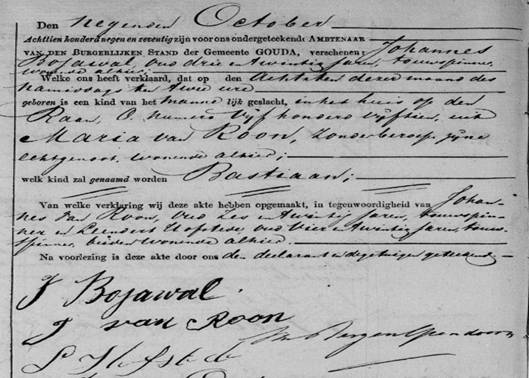 Den negenden October
Achttien honderd negen en zeventig zijn voor ons ondergeteekende AMBTENAAR
VAN DEN BURGERLIJKEN STAND der Gemeente GOUDA, verschenen: Johannes
Bojawal, oud drie en twintig jaren, touwspinner,
wonende alhier;
Welke ons heeft verklaard, dat op den Achtsten dezer maand des
namiddags ten twee ure
geboren is een kind van het mannelijk geslacht, in het huis op den
Raam, O, numero vijfhonderd vijftien, uit
Maria van Roon, zonder beroep, zijne
echtgenoot, wonende alhier;
welk kind zal genaamd worden Bastiaan;
Van welke verklaring wij deze akte hebben opgemaakt, in tegenwoordigheid van Johan-
nes van Roon, oud zes en twintig jaren, touwspin-
ner en Leendert Hofstede, oud vier en twintig jaren, touw-
spinner, beiden wonende alhier.
Na voorlezing is deze akte door ons den declarant en de getuigen geteekend
J Bojawal.
J van Roon
L Hofstede